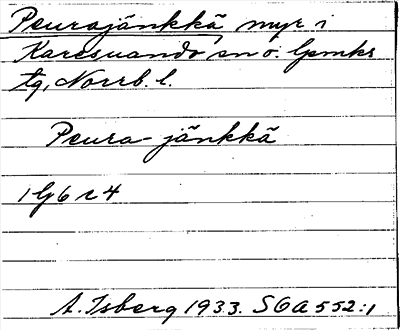 Peurajänkkä, myr i
Karesuando sn o. lpmks
tg, Norrb. l.
Peura-jänkkä
1 lj 6 r 4
A. Isberg 1933. SOA 552:1